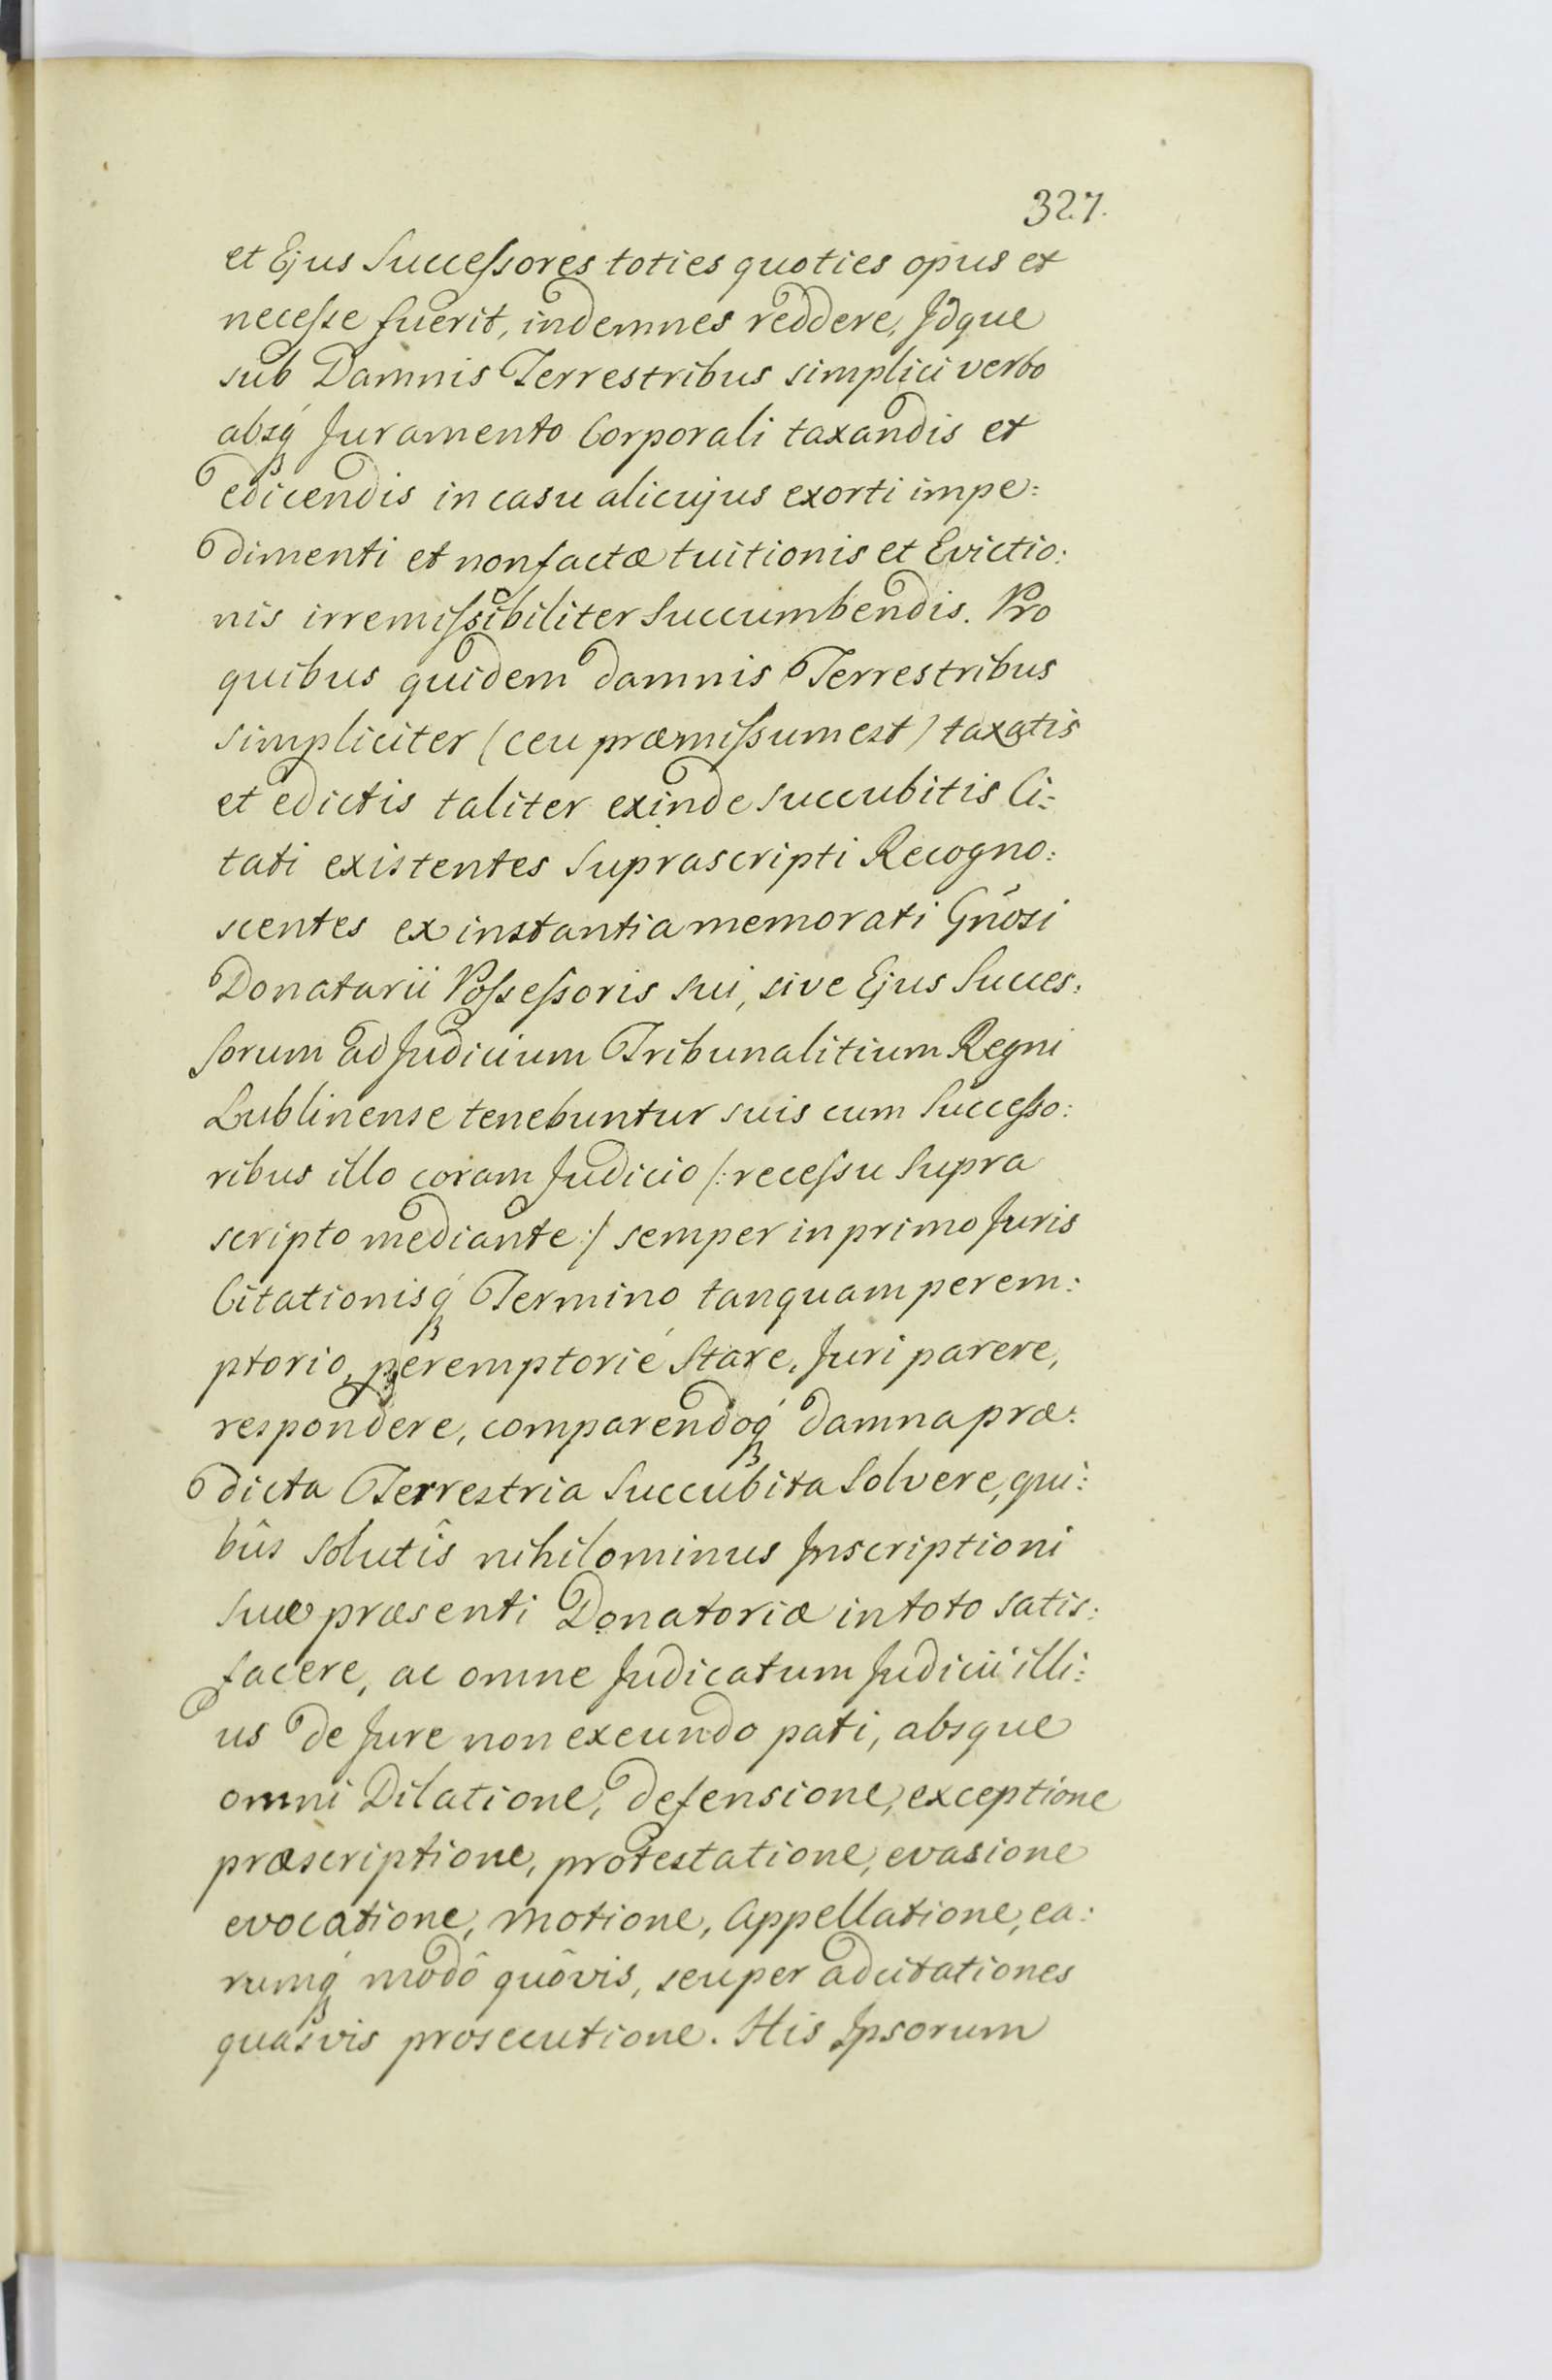 327.
et Ejus Successores toties quoties opus et
necesse fuerit, indemnes reddere, Jdque
sub Damnis Terrestribus simplici verbo
absq́ Juramento Corporali taxandis et
edicendis in casu alicujus exorti impe:
dimenti et non factæ tuitionis et Evictio:
nis irremissibiliter Succumbendis. Pro
quibus quidem damnis Terrestribus
simpliciter (ceu præmissum est) taxatis
et edictis taliter exinde succubitis Ci:
tati existentes Suprascripti Recogno:
scentes ex instantia memorati Gñosi
Donatarii Possessoris sui, sive Ejus Succes:
sorum ad Judicium Tribunalitium Regni
Lublinense tenebuntur suis cum Successo:
ribus illo coram Judicio /: recessu Supra
scripto mediante :/ semper in primo Juris
Citationisq́ Termino tanquam perem:
ptorio, peremptorié Stare, Juri parere,
respondere, comparendoq́ damna præ:
dicta Terrestria Succubita Solvere, qui:
bûs solutîs nihilominus Jnscriptioni
Suæ præsenti Donatoriæ in toto satis:
facere, ac omne Judicatum Judicii illi:
us de Jure non exeundo pati, absque
omni Dilatione, defensione, exceptione
præscriptione, protestatione, evasione
evocatione, motione, Appellatione, ea:
rumq́ modô quôvis, seu per adcitationes
quasvis prosecutione. His Jpsorum